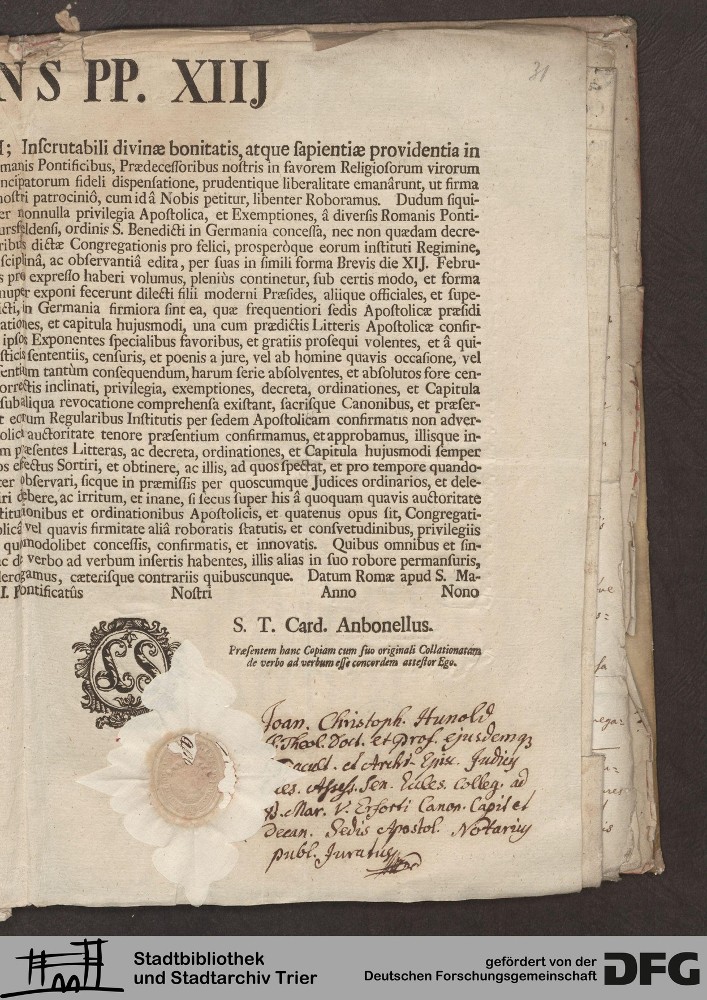 NS PP. XIIJ
31
I; Inſcrutabili divinæ bonitatis, atque ſapientiæ providentia in
manis Pontificibus, Prædeceſſoribus noſtris in favorem Religioſorum virorum
ncipatorum fideli diſpenſatione, prudentique liberalitate emanârunt, ut firma
noſtri patrociniô, cum id â Nobis petitur, libenter Roboramus. Dudum ſiqui-
er nonnulla privilegia Apoſtolica, et Exemptiones, â diverſis Romanis Ponti-
ursfeldenſi, ordinis S. Benedicti in Germania conceſſa, nec non quædam decre-
ribus dictæ Congregationis pro felici, proſperòque eorum inſtituti Regimine,
ſciplinâ, ac obſervantiâ edita, per ſuas in ſimili forma Brevis die XIJ. Febru-
s pro expreſſo haberi volumus, pleniùs continetur, ſub certis modo, et forma
nuper exponi fecerunt dilecti filii moderni Præſides, aliique officiales, et ſupe-
icti, in Germania firmiora ſint ea, quæ frequentiori ſedis Apoſtolicæ præſidi
ationes, et capitula hujusmodi, una cum prædictis Litteris Apoſtolicæ confir-
ipſos Exponentes ſpecialibus favoribus, et gratiis proſequi volentes, et â qui-
ſticis ſententiis, cenſuris, et poenis a jure, vel ab homine quavis occaſione, vel
entium tantùm conſequendum, harum ſerie abſolventes, et abſolutos fore cen-
orrectis inclinati, privilegia, exemptiones, decreta, ordinationes, et Capitula
ſub aliqua revocatione comprehenſa exiſtant, ſacriſque Canonibus, et præſer-
t eorum Regularibus Inſtitutis per ſedem Apoſtolicam confirmatis non adver-
olicâ auctoritate tenore præſentium confirmamus, et approbamus, illisque in-
m præſentes Litteras, ac decreta, ordinationes, et Capitula hujusmodi ſemper
os effectus Sortiri, et obtinere, ac illis, ad quos ſpectat, et pro tempore quando-
ter obſervari, ſicque in præmiſſis per quoscumque Judices ordinarios, et dele-
iri debere, ac irritum, et inane, ſi ſecus ſuper his â quoquam quavis auctoritate
titutionibus et ordinationibus Apoſtolicis, et quatenus opus ſit, Congregati-
olicâ vel quavis firmitate aliâ roboratis ſtatutis, et conſvetudinibus, privilegiis
quomodolibet conceſſis, confirmatis, et innovatis. Quibus omnibus et ſin-
ac de verbo ad verbum inſertis habentes, illis alias in ſuo robore permanſuris,
derogamus, cæteriſque contrariis quibuscunque. Datum Romæ apud S. Ma-
I. Pontificatûs Noſtri Anno Nono
S. T. Card. Anbonellus.
Præſentem hanc Copiam cum ſuo originali Collationatam
de verbo ad verbum eſſe concordem atteſtor Ego.
LS
Joan. Christoph. Hunold
Theol. Doct. et Prof. ejusdemq
Facult. et Archi-Episc. Judicij
Assess. Sen. Eccles. Colleg. ad
B. Mar. V. Erforti Canon. Capit et
Decan. Sedis Apostol. Notarius
publ. Juratus
Stadtbibliothek
und Stadtarchiv Trier
gefördert von der
Deutschen Forschungsgemeinschaft
DFG